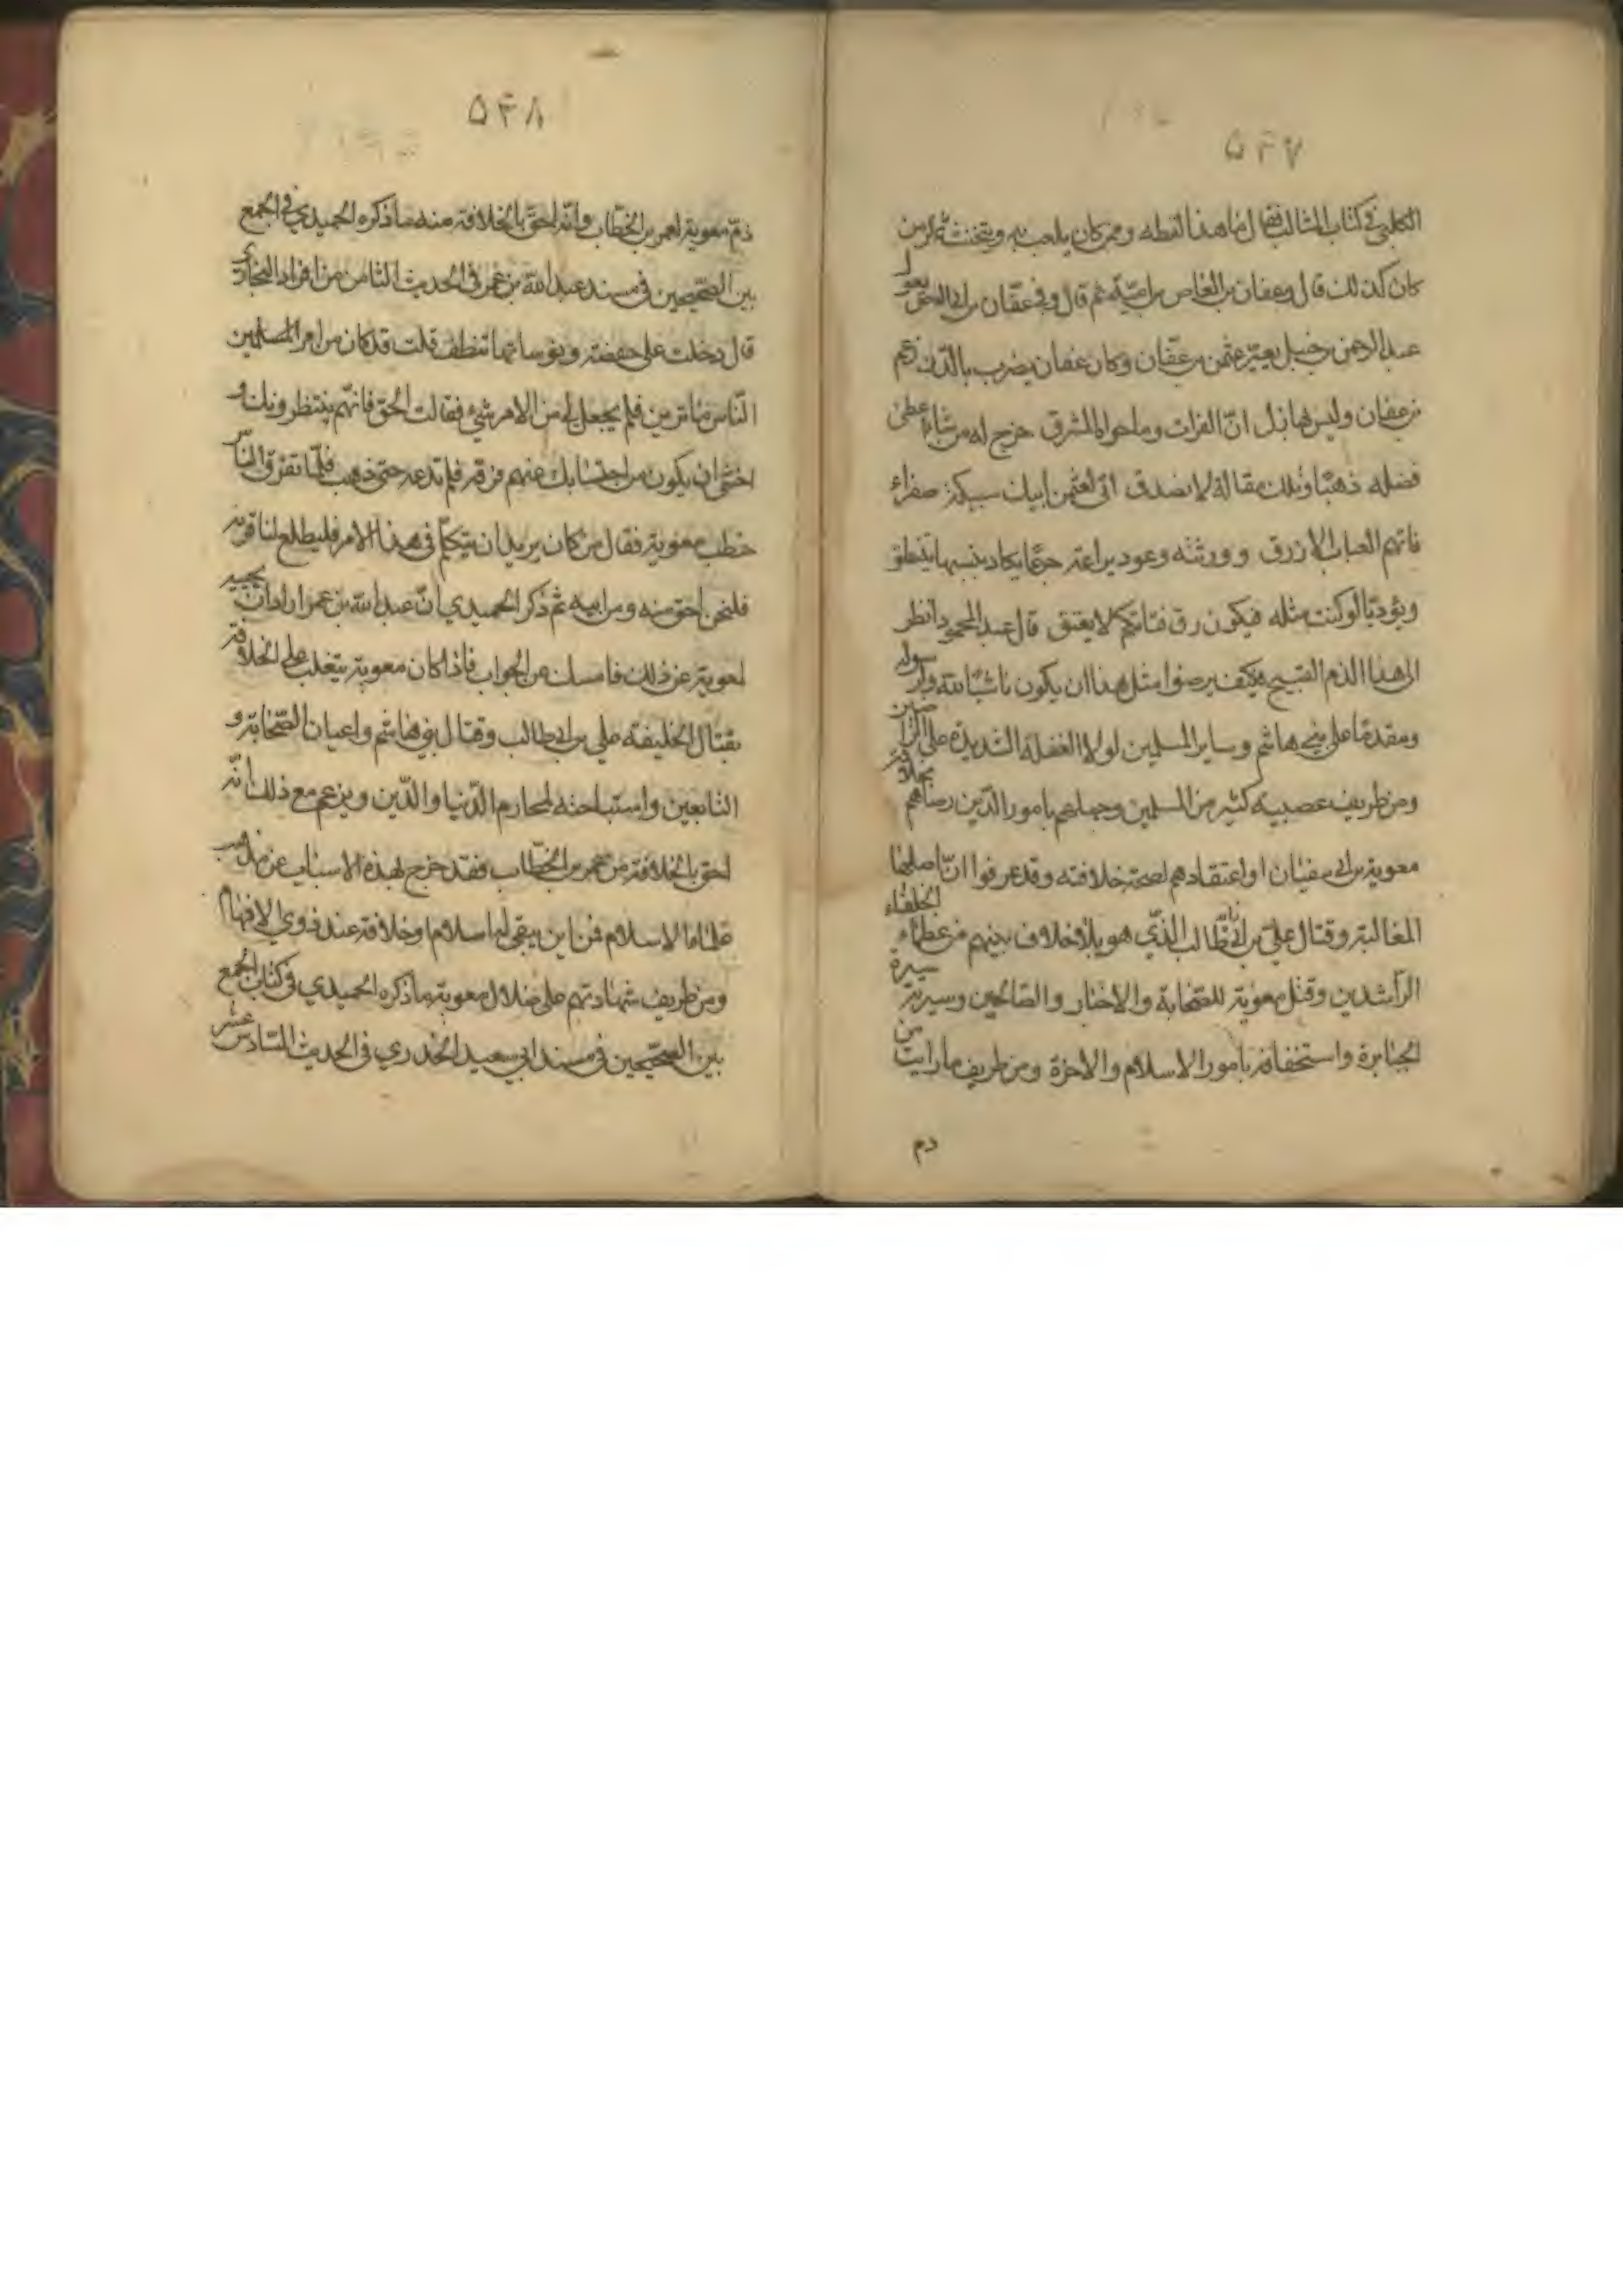 ٥٤٧
الكلبي في كتاب المثالب فقال ما هذا لفظه وممن كان يلعب به ويتخنث
كان كذلك قال وعفان بن العاص بن امية ثم قال وفي عفان بن ابي العاص يقول
عبد الرحمن بن حنبل يعير عثمن بن عفان وكان عفان يضرب بالدف زعم
بن عفان وليس هازل ان الفرات وما حواه المشرق خرج له من شاء اعطى
فضله ذهبا وتلك مقالة لا تصدق انى لعثمن ابيك سبيكة صفراء
العباب الازرق وورثته
ويؤدنا لوكنت مثله فيكون رق فتاتكم لا يعتق قال عبد المحمود انظر
الى هذا الذم القبيح فكيف يرضوا مثل هذا ان يكون نائبا لله ولرسوله
ومقدما على بني هاشم وساير المسلمين لولا الغفلة الشديدة على الراضين
ومن طريف عصبية كثير من المسلمين وجهلهم بامور الدين رضاهم بخلافة
معوية بن ابي سفيان او اعتقادهم لصحة خلافته وقد عرفوا ان اصلها
المغالبة وقتال علي بن ابي طالب الذي هو بلا خلاف بينهم من عظماء الخلفاء
الراشدين وقتل معوية للصحابة والاخيار والصالحين وسيرته سيرة
الجبابرة واستخفافه بامور الاسلام والاخرة ومن طريف ما رايت من
ذم
٥٤٨
ذم معوية لعمر بن الخطاب وانه احق بالخلافة منه ما ذكره الحميدي في الجمع
بين الصحيحين في مسند عبد الله بن عمر في الحديث الثامن من افراد البخاري
قال دخلت على حفصة ونوساتها تنطف قلت قد كان من امر المسلمين
الناس ما ترين فلم يجعل لي من الامر شيء فقالت الحق فانهم ينتظرونك و
اخشى ان يكون من احتباسك عنهم فرقة فلم تدعه حتى ذهب فلما تفرق الناس
خطب معوية فقال من كان يريد ان يتكلم في هذا الامر فليطلع لنا قرنه
فلنحن احق منه ومن ابيه ثم ذكر الحميدي ان عبد الله بن عمر اراد ان يجيب
لمعوية عن ذلك فامسك عن الجواب فاذا كان معوية يتغلب على الخلافة
بقتال الخليفة علي بن ابي طالب وقتال بني هاشم واعيان الصحابة و
التابعين واستباحته لمحارم الدنيا والدين ويزعم مع ذلك انه
احق بالخلافة من عمر بن الخطاب فقد خرج لهذه الاسباب عن مذاهب
علماء الاسلام فمن اين يبقى له اسلام او خلافة عند ذوي الافهام
ومن طريف شهادتهم على ضلال معوية ما ذكره الحميدي في كتاب الجمع
بين الصحيحين في مسند ابي سعيد الخدري في الحديث السادس عشر